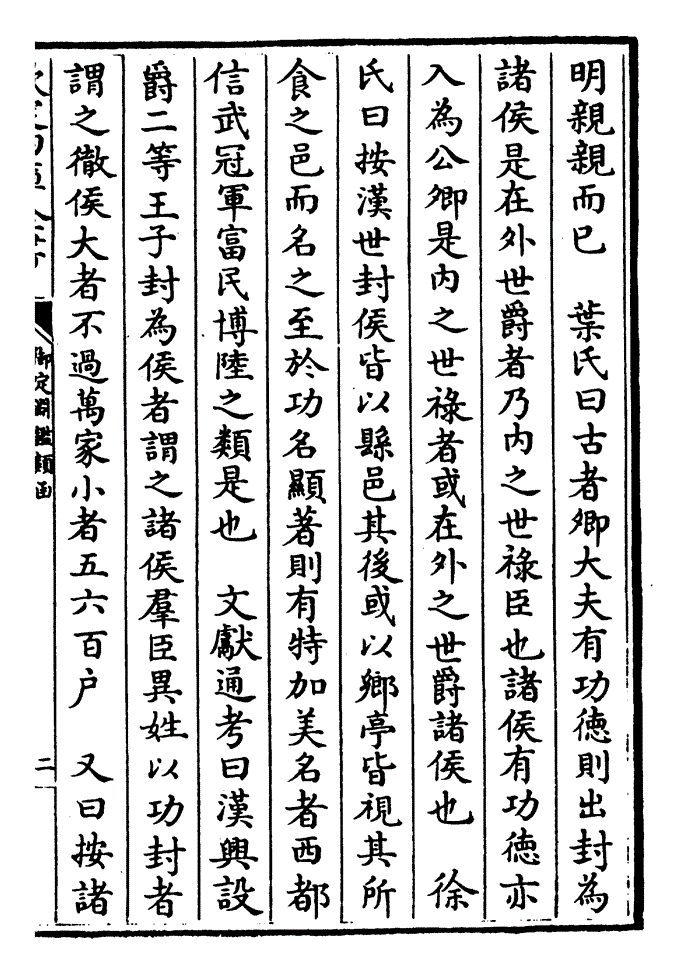 明親親而已　葉氏曰古者卿大夫有功徳則出封為
諸侯是在外世爵者乃内之世祿臣也諸侯有功徳亦
入為公卿是内之世祿者或在外之世爵諸侯也　徐
氏曰按漢世封侯皆以縣邑其後或以鄉亭皆視其所
食之邑而名之至於功名顯著則有特加美名者西都
信武冠軍富民博陸之類是也　文獻通考曰漢興設
爵二等王子封為侯者謂之諸侯羣臣異姓以功封者
謂之徹侯大者不過萬家小者五六百户　又曰按諸
御定淵鑑類函
二